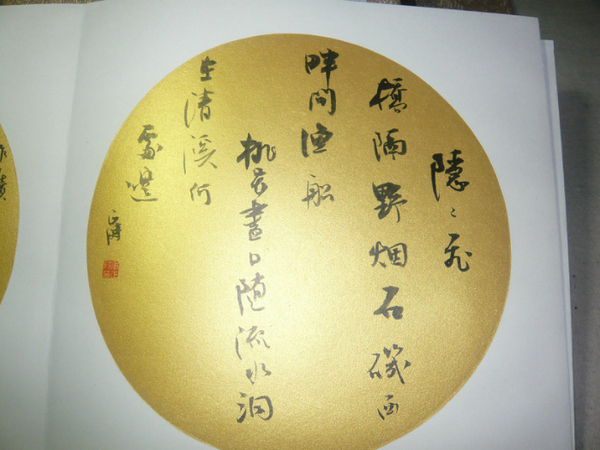 隱〻飛
橋隔野烟石磯西
畔問漁船
桃花盡日随流水洞
在清溪何
處邊